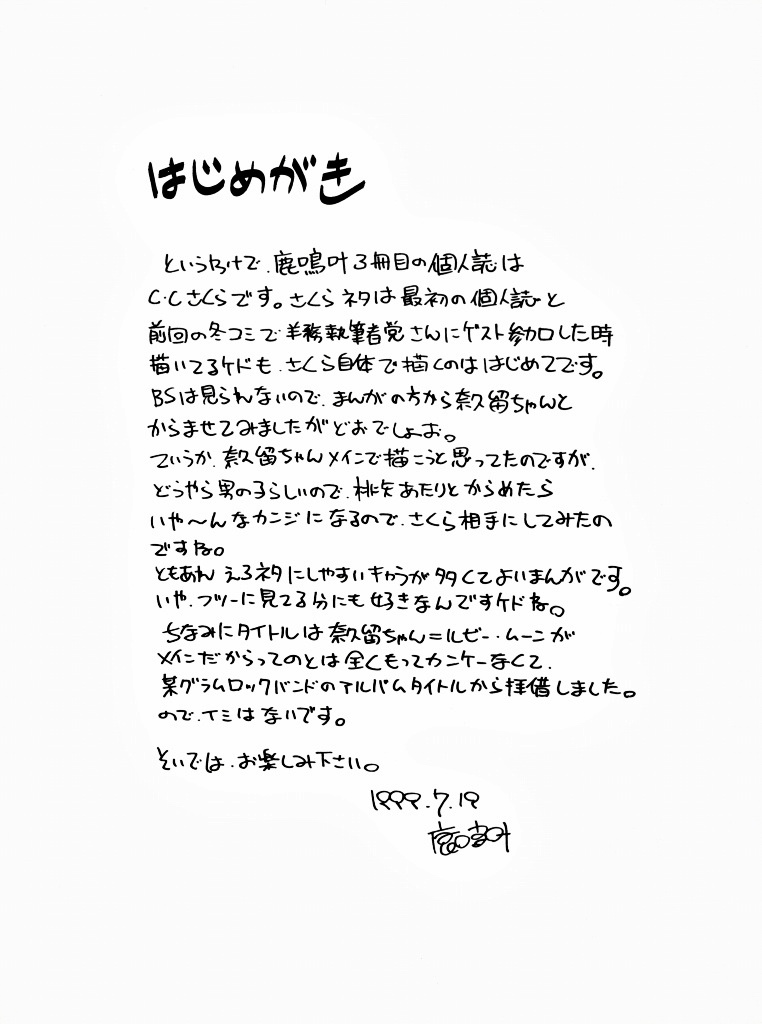 はじめがき
というわけで、鹿鳴叶3冊目の個人誌は
C・Cさくらです。さくらネタは最初の個人誌と
前回の冬コミで義務執筆者党さんにゲスト参加した時
描いてるケドも、さくら自体で描くのははじめてです。
BSは見られないので、まんがの方から奈久留ちゃんと
からませてみましたがどおでしょお。
ていうか、奈久留ちゃんメインで描こうと思ってたのですが、
どうやら男の子らしいので、桃矢あたりとからめたら
いや〜んなカンジになるので、さくら相手にしてみたの
ですね。
ともあれ えろネタにしやすいキャラが多くてよいまんがです。
いや、フツーに見てる分にも好きなんですケドね。
ちなみにタイトルは奈久留ちゃん=ルビー・ムーンが
メインだからってのとは全くもってカンケーなくて、
某グラムロックバンドのアルバムタイトルから拝借しました。
ので、イミはないです。
そいでは、お楽しみ下さい。
1999.7.19